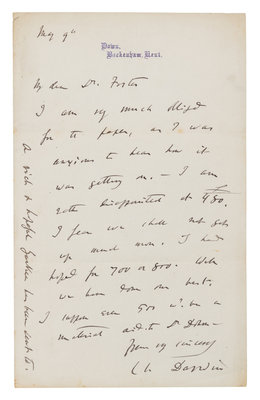 May 9th
Down,
Beckenham, Kent.
My dear Dr. Foster
I am very much obliged
for the paper, as I was
anxious to hear how it
was getting on. — I am
rather disappointed at 480.
I fear we shall not get
up much more. I had
hoped for 700 or 800. Well
we have done our best,
I suppose even 500 wd. be a
material aid to Dr Dohrn —
yours very sincerely
Ch Darwin
A rich &
has been sent to.